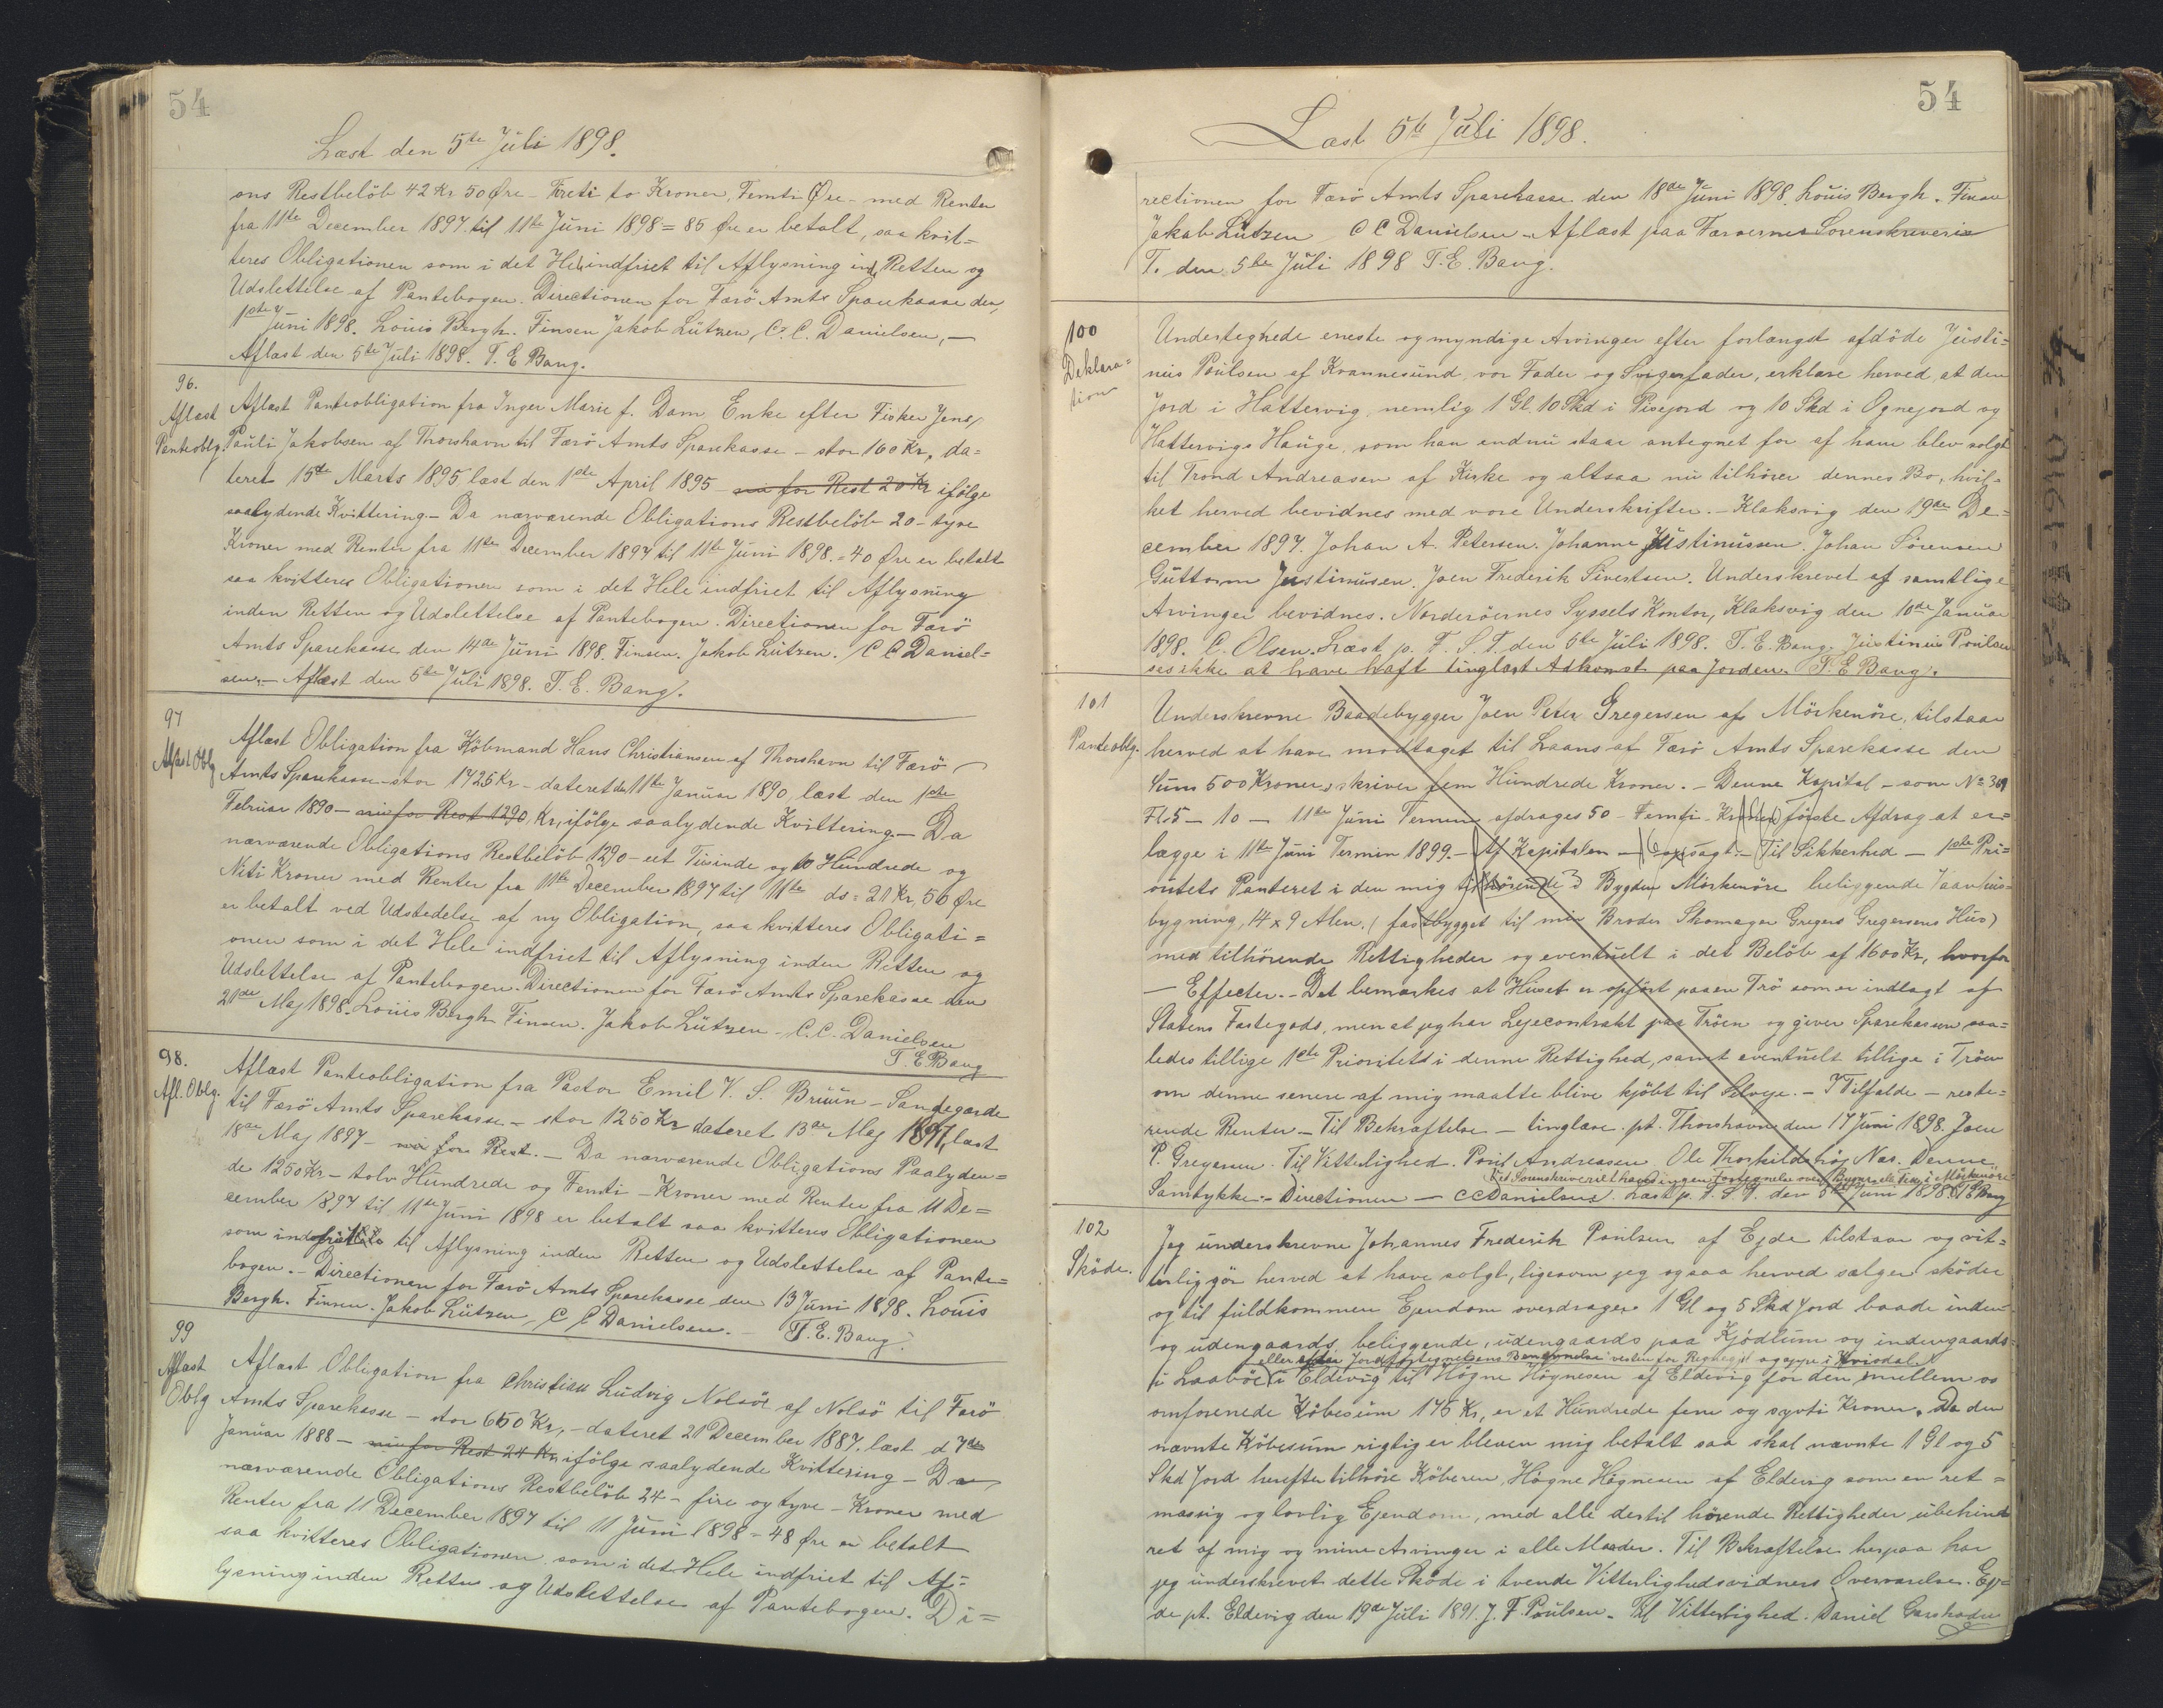 54
Læst den 5te Juli 1898.
ons Restbelöb 42 Kr 50 Øre – Fireti to Kroner, Femti Øre – med Renter
fra 11te December 1897 til 11te Juni 1898 = 85 Øre er betalt, saa kvit=
teres Obligationen som i det Hele indfriet til Aflysning ind. Retten og
Udslettelse af Pantebogen. Directionen for Færö Amts Sparekasse den
1ste Juni 1898. Louis Bergh. Finsen Jakob Lützen, C. C. Danielsen, –
Aflæst den 5te Juli 1898. T. E. Bang.
96.
Aflæst
Panteoblg.
Aflæst Panteobligation fra Inger Marie f. Dam Enke efter Fisker Jens
Pauli Jakobsen af Thorshavn til Færö Amts Sparekasse – stor 160 Kr, da=
teret 15de Marts 1895 læst den 1ste April 1895 – nu for Rest 20 Kr ifölge
saalydende Kvittering – Da nærværende Obligations Restbelöb 20 – tyve
Kroner med Renter fra 11te December 1897 til 11te Juni 1898 = 40 Øre er betalt
saa kvitteres Obligationen som i det Hele indfriet til Aflysning
inden Retten og Udslettelse af Pantebogen. Directionen for Færö
Amts Sparekasse den 14de Juni 1898. Finsen. Jakob Lützen. C C Daniel=
sen. – Aflæst den 5te Juli 1898. T. E. Bang.
97
Aflæst Oblg
Aflæst Obligation fra Köbmand Hans Christiansen af Thorshavn til Færö
Amts Sparekasse – stor 1425 Kr – dateret d 11te Januar 1890, læst den 1ste
Februar 1890 – nu for Rest 1290 Kr, ifölge saalydende Kvittering – Da
nærværende Obligations Restbelöb 1290 – eet Tusinde og to Hundrede og
Niti Kroner med Renter fra 11te December 1897 til 11te ds = 21 Kr, 50 Øre
er betalt ved Udstedelse af ny Obligation, saa kvitteres Obligati=
onen som i det Hele indfriet til Aflysning inden Retten og
Udslettelse af Pantebogen. Directionen for Færö Amts Sparekasse den
21de Maj 1898. Louis Bergh Finsen. Jakob Lützen – C. C. Danielsen
T. E. Bang
98.
Afl. Oblg.
Aflæst Panteobligation fra Pastor Emil V. S. Bruun – Sandegærde
til Færö Amts Sparekasse – stor 1250 Kr dateret 13de Maj 1897, læst
18de Maj 1897 – nu for Rest. – Da nærværende Obligations Paalyden=
de 1250 Kr – tolv Hundrede og Femti – Kroner med Renter fra 11 De=
cember 1897 til 11te Juni 1898 er betalt saa kvitteres Obligationen
som indfriet til Aflysning inden Retten og Udslettelse af Pante=
bogen. – Directionen for Færö Amts Sparekasse den 13 Juni 1898. Louis
Bergh. Finsen. Jakob Lützen, C C Danielsen. – T. E. Bang.
99
Aflæst
Oblg
Aflæst Obligation fra Christian Ludvig Nolsöe af Nolsö til Færö
Amts Sparekasse – stor 650 Kr, – dateret 21 December 1887. læst d 7de
Januar 1888 – nu for Rest 24 Kr, ifölge saalydende Kvittering – Da
nærværende Obligations Restbelöb 24 – fire og tyve – Kroner med
Renter fra 11 December 1897 til 11 Juni 1898 = 48 Øre er betalt
saa kvitteres Obligationen som i det Hele indfriet til Af=
lysning inden Retten og Udslettelse af Pantebogen. Di=
54
Læst 5te Juli 1898.
rectionen for Færö Amts Sparekasse den 18de Juni 1898. Louis Bergh. Finsen
Jakob Lützen C C Danielsen – Aflæst paa Færoernes Sorenskriveri
T. den 5te Juli 1898 T. E. Bang.
100
Deklara=
tion
Undertegnede eneste og myndige Arvinger efter forlængst afdöde Justi=
nus Poulsen af Kvannesund, vor Fader og Svigerfader, erklære herved, at den
Jord i Hattervig, nemlig 1 Gl. 10 Skd i Pisejord og 10 Skd i Ognejord og
Hattervigs Hauge, som han endnu staar antegnet for af ham blev solgt
til Trond Andreasen af Kirke og altsaa nu tilhörer dennes Bo, hvil=
ket herved bevidnes med vore Underskrifter. – Klaksvig den 19de De=
cember 1897. Johan A. Petersen. Johanne Justinussen. Johan Sörensen
Guttorm Justinusen. Joen Frederik Sivertsen. Underskrevet af samtlige
Arvinger bevidnes. Norderöernes Syssels Kontor, Klaksvig den 10de Januar
1898. C. Olsen. Læst p. F. S. T. den 5te Juli 1898. T. E. Bang. Justinus Poulsen
ses ikke at have haft tinglæst Adkomst paa Jorden. T. E. Bang.
101
Panteoblg.
Underskrevne Baadebygger Joen Peter Gregersen af Mörkenöre, tilstaar
herved at have modtaget til Laans af Færö Amts Sparekasse den
Sum 500 Kroner, skriver fem Hundrede Kroner. – Denne Kapital – som No 309
Fl. 5 – 10 – 11te Juni Termin afdrages 50 – Femti – Kroner förste Afdrag at er=
lægge i 11te Juni Termin 1899. – Af Kapitalen – opsagt. – Til Sikkerhed – 1ste Pri=
oritets Panteret i den mig tilhörende i Bygden Mörkenöre beliggende Vaanhus=
bygning, 14 x 9 Alen, (fastbygget til min Broder Skomager Gregers Gregersens Hus)
med tilhörende Rettigheder og eventuelt i det Belöb af 1600 Kr, hvorfor
– Effecter. – Det bemærkes at Huset er opfört paa en Trö som er indtagt af
Statens Fæstegods, men at jeg har Lejecontrakt paa Tröen og giver Sparekassen saa=
ledes tillige 1ste Prioritets i denne Rettighed, samt eventuelt tillige i Tröen
om denne senere af mig maatte blive kjöbt til Selveje. – I Tilfælde – reste=
rende Renter – Til Bekræftelse – tinglæse. pt. Thorshavn den 17 Juni 1898. Joen
P. Gregersen. Til Vitterlighed. Poul Andreasen Ole Thorkildshöj Næs. Denne
Ved Sorenskriveriet haves ingen Fortegnelse over i Mörkenöre
Samtykke – Directionen – C C Danielsen. Læst p. F. S. T. den 5te Juni 1898. T E Bang
102
Sköde.
Jeg underskrevne Johannes Frederik Poulsen af Ejde tilstaar og vit=
terliggör herved at have solgt, ligesom jeg ogsaa herved sælger sköder
og til fuldkommen Ejendom overdrager 1 Gl og 5 Skd Jord baade inden
og udengaards, beliggende, udengaards paa Kjödlum og indengaards
eller efter Jordfortegnelsens Benævnelse vesten for og oppe i Kvisdal.
i Laaböe i Eldevig til Högne Högnesen af Eldevig for den imellem os
omforenede Köbesum 175 Kr, er et Hundrede fem og syvti Kroner. Da den
nævnte Köbesum rigtig er bleven mig betalt saa skal nævnte 1 Gl og 5
Skd Jord herefter tilhöre Köberen, Högne Högnesen af Eldevig som en ret=
mæssig og lovlig Ejendom, med alle dertil hörende Rettigheder ubehind
ret af mig og mine Arvinger i alle Maader. Til Bekræftelse herpaa har
jeg underskrevet dette Sköde i tvende Vitterlighedsvidners Overværelse. Ej=
de pt. Eldevig den 19de Juli 1891. J. F. Poulsen. Til Vitterlighed. Daniel